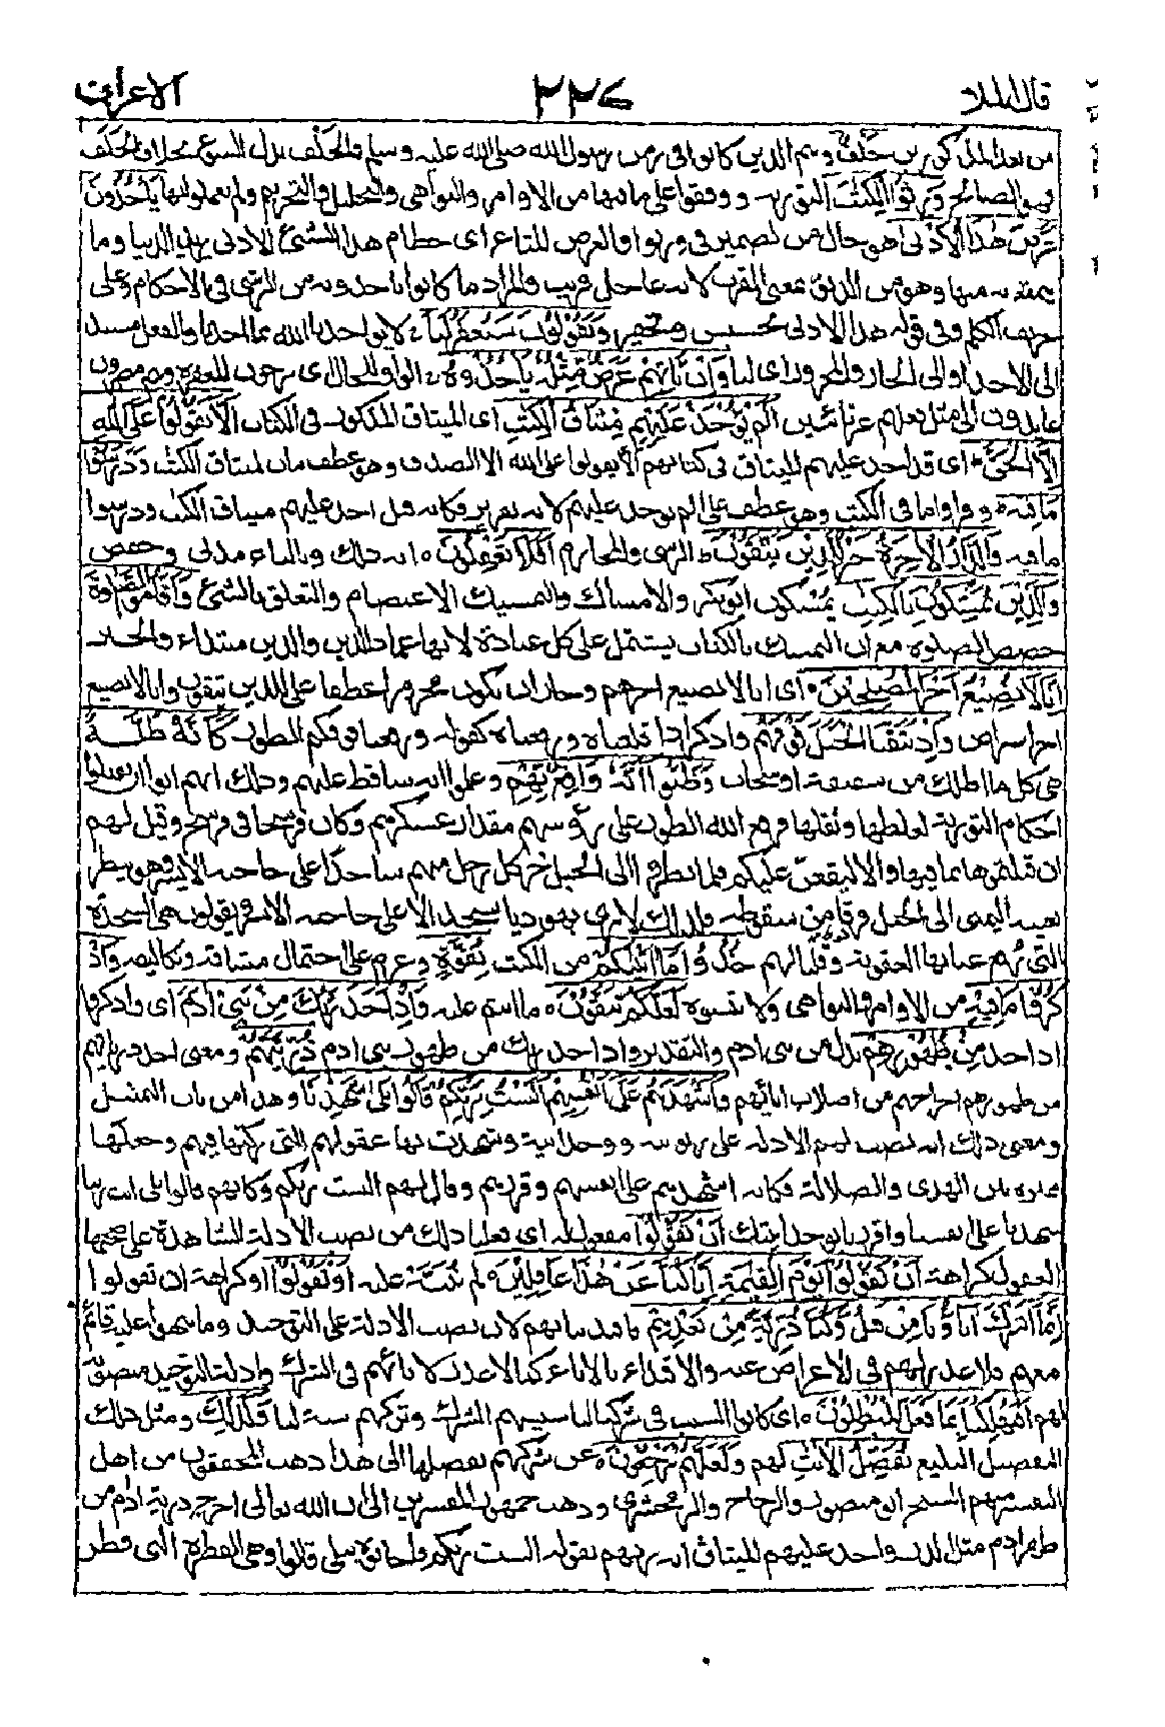 قال الملا ٢٢٧ الاعراف
من بعد المذكورين خَلْفٌ وهم الذين كانوا فى زمن رسول الله صلى الله عليه وسلم والخلف بدل السوء بخلاف الخَلَف
فهو الصالح وَرِثُوا الْكِتٰبَ التورىة ووقفوا على ما فيها من الاوامر والنواهى والتحليل والتحريم ولم يعملوا بها يَأْخُذُوْنَ
عَرَضَ هٰذَا الْاَدْنٰى هو حال من الضمير فى ورثوا والعرض المتاع اى حطام هذا الشئ الادنى يريد الدنيا وما
يتمتع به منها وهو من الدنو بمعنى القرب لانه عاجل قريب والمراد ما كانوا ياخذونه من الرشى فى الاحكام وعلى
تحريف الكلم وفى قوله هذا الادنى تخسيس وتحقير وَيَقُوْلُوْنَ سَيُغْفَرُ لَنَا لا يؤاخذنا الله بما اخذنا والفعل مسند
الى الاخذ او الى الجار والمجرور اى لنا وَاِنْ يَّاْتِهِمْ عَرَضٌ مِّثْلُهٗ يَأْخُذُوْهُ الواو للحال اى يرجون المغفرة وهم مصرون
عائدون الى مثل فعلهم غير تائبين اَلَمْ يُؤْخَذْ عَلَيْهِمْ مِّيْثَاقُ الْكِتٰبِ اى الميثاق المذكور فى الكتاب اَلَّا يَقُوْلُوْا عَلَى اللهِ
اِلَّا الْحَقَّ اى قد اخذ عليهم الميثاق فى كتابهم الا يقولوا على الله الا الصدق وهو عطف بيان لميثاق الكتب وَدَرَسُوْا
مَا فِيْهِ وقراوا ما فى الكتب وهو عطف على الم يوخذ عليهم لانه تقرير فكانه قيل اخذ عليهم ميثاق الكتب ودرسوا
ما فيه وَالدَّارُ الْاٰخِرَةُ خَيْرٌ لِّلَّذِيْنَ يَتَّقُوْنَ الرشى والمحارم اَفَلَا تَعْقِلُوْنَ انه كذلك وبالتاء مدنى وحفص
وَالَّذِيْنَ يُمَسِّكُوْنَ بِالْكِتٰبِ يُمْسِكون ابوبكر والامساك والتمسيك الاعتصام والتعلق بالشئ وَاَقَامُوا الصَّلٰوةَ
خصص الصلوة مع ان التمسك بالكتاب يشتمل على كل عبادة لانها عماد الدين والذين مبتداء والخبر
اِنَّا لَا نُضِيْعُ اَجْرَ الْمُصْلِحِيْنَ اى انا لا نضيع اجرهم وجاز ان يكون مجرورا عطفا على الذين يتقون وانا لا نضيع
اعتراض وَاِذْ نَتَقْنَا الْجَبَلَ فَوْقَهُمْ واذكر اذ قلعناه ورفعناه كقوله ورفعنا فوقكم الطور كَاَنَّهٗ ظُلَّةٌ
هى كل ما اظلك من سقيفة او سحاب وَظَنُّوْا اَنَّهٗ وَاقِعٌۢ بِهِمْ وعلموا انه ساقط عليهم وذلك انهم ابوا ان يقبلوا
احكام التورية لغلظها وثقلها فرفع الله الطور على رؤسهم مقدار عسكرهم وكان فرسخا فى فرسخ وقيل لهم
ان قبلتموها بما فيها والا ليقعن عليكم فلما نظروا الى الجبل خر كل رجل منهم ساجدا على حاجبه الايسر وهو ينظر
بعينه اليمنى الى الجبل فرقا من سقوطه فلذلك لا ترى يهوديا يسجد الا على حاجبه الايسر ويقولون هى السجدة
التى رُفِع عنا بها العقوبة وقلنا لهم خُذُوْا مَا اٰتَيْنٰكُمْ من الكتب بِقُوَّةٍ وعزم على احتمال مشاقه وتكاليفه وَاذْ
كُرُوْا مَا فِيْهِ من الاوامر والنواهى ولا تنسوه لَعَلَّكُمْ تَتَّقُوْنَ ما انتم عليه وَاِذْ اَخَذَ رَبُّكَ مِنْۢ بَنِيْ اٰدَمَ اى واذكروا
اذ اخذ مِنْ ظُهُوْرِهِمْ بدل من بنى ادم والتقدير واذ اخذ ربك من ظهور بنى ادم ذُرِّيَّتَهُمْ ومعنى اخذ ذرياتهم
من ظهورهم اخراجهم من اصلاب ابائهم وَاَشْهَدَهُمْ عَلٰى اَنْفُسِهِمْ اَلَسْتُ بِرَبِّكُمْ قَالُوْا بَلٰى شَهِدْنَا وهذا من باب التمثيل
ومعنى ذلك انه نصب لهم الادلة على ربوبيته ووحدانيته وشهدت بها عقولهم التى ركبها فيهم وجعلها
مميزة بين الهدى والضلالة فكانه اشهدهم على انفسهم وقررهم وقال لهم الست بربكم وكانهم قالوا بلى انت ربنا
شهدنا على انفسنا واقررنا بوحدانيتك اَنْ تَقُوْلُوْا مفعول له اى فعلنا ذلك من نصب الادلة الشاهدة على صحتها
العقول كراهة اَنْ تَقُوْلُوْا يَوْمَ الْقِيٰمَةِ اِنَّا كُنَّا عَنْ هٰذَا غَافِلِيْنَ لم ننبه عليه اَوْ تَقُوْلُوْا او كراهة ان تقولوا
اِنَّمَا اَشْرَكَ اٰبَآؤُنَا مِنْ قَبْلُ وَكُنَّا ذُرِّيَّةً مِّنْۢ بَعْدِهِمْ فاقتدينا بهم لان نصب الادلة على التوحيد وما نبهوا عليه قائم
معهم فلا عذر لهم فى الاعراض عنه والاقتداء بالاباء كما لا عذر لابائهم فى الشرك وادلة التوحيد منصوبة
لهم اَفَتُهْلِكُنَا بِمَا فَعَلَ الْمُبْطِلُوْنَ اى كانوا السبب فى شركنا لتاسيسهم الشرك وتركهم سنة لنا وَكَذٰلِكَ ومثل ذلك
التفصيل البليغ نُفَصِّلُ الْاٰيٰتِ لهم وَلَعَلَّهُمْ يَرْجِعُوْنَ عن شركهم نفصلها الى هذا ذهب المحققون من اهل
التفسير منهم الشيخ ابو منصور والزجاج والزمخشرى وذهب جمهور المفسرين الى ان الله تعالى اخرج ذرية ادم من
ظهر ادم مثل الذر واخذ عليهم الميثاق انه ربهم بقوله الست بربكم فاجابوه ببلى قالوا وهى الفطرة التى فطر